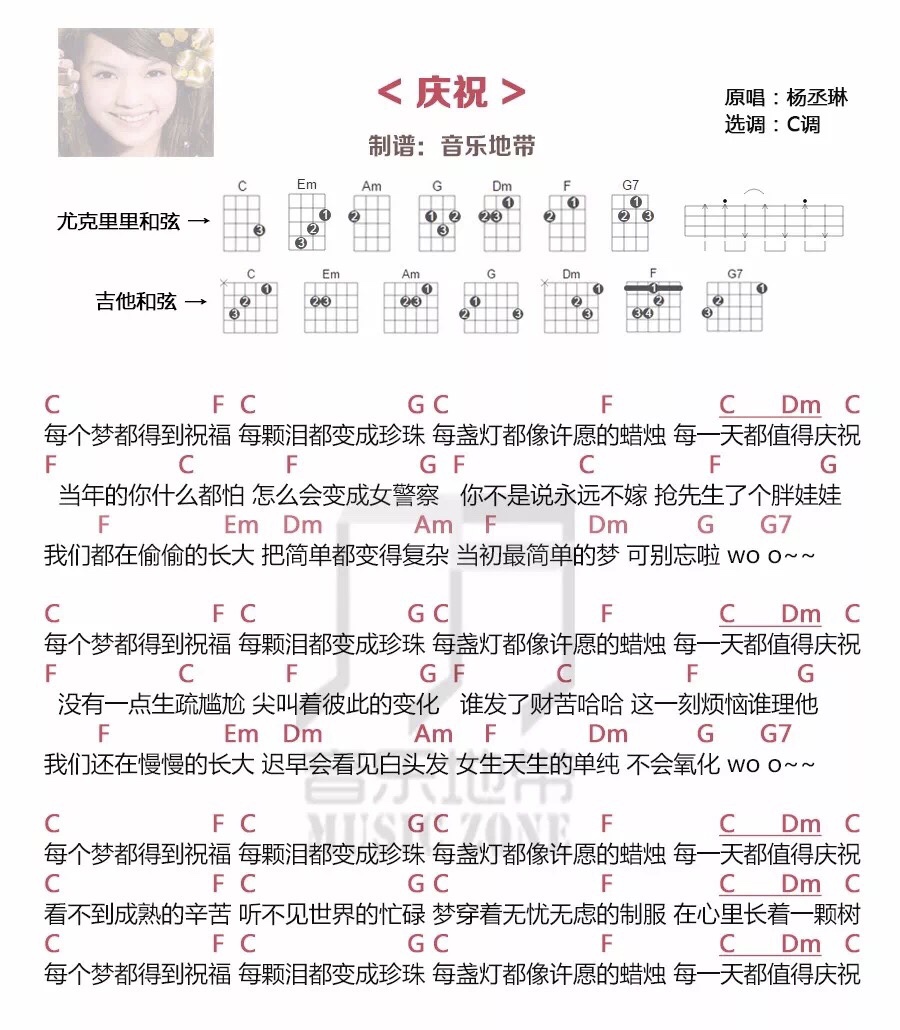 < 庆祝 >
原唱：杨丞琳
选调：C调
制谱：音乐地带
C Em Am G Dm F G7
尤克里里和弦 →
C Em Am G Dm F G7
吉他和弦 →
C F C G C F C Dm C
每个梦都得到祝福 每颗泪都变成珍珠 每盏灯都像许愿的蜡烛 每一天都值得庆祝
F C F G F C F G
当年的你什么都怕 怎么会变成女警察 你不是说永远不嫁 抢先生了个胖娃娃
F Em Dm Am F Dm G G7
我们都在偷偷的长大 把简单都变得复杂 当初最简单的梦 可别忘啦 wo o~~
C F C G C F C Dm C
每个梦都得到祝福 每颗泪都变成珍珠 每盏灯都像许愿的蜡烛 每一天都值得庆祝
F C F G F C F G
没有一点生疏尴尬 尖叫着彼此的变化 谁发了财苦哈哈 这一刻烦恼谁理他
F Em Dm Am F Dm G G7
我们还在慢慢的长大 迟早会看见白头发 女生天生的单纯 不会氧化 wo o~~
音乐地带
MUSIC ZONE
C F C G C F C Dm C
每个梦都得到祝福 每颗泪都变成珍珠 每盏灯都像许愿的蜡烛 每一天都值得庆祝
C F C G C F C Dm C
看不到成熟的辛苦 听不见世界的忙碌 梦穿着无忧无虑的制服 在心里长着一颗树
C F C G C F C Dm C
每个梦都得到祝福 每颗泪都变成珍珠 每盏灯都像许愿的蜡烛 每一天都值得庆祝